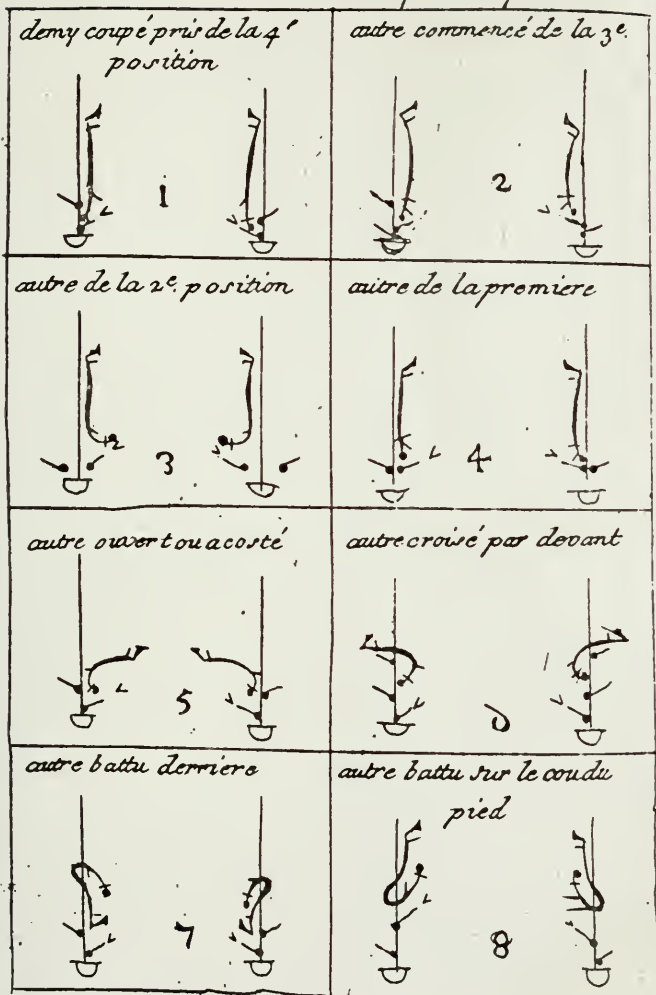 demy coupé pris de la 4e
position
autre commencé de la 3e.
1
2
autre de la 2e. position
autre de la premiere
3
4
autre ouvert ou a costé
autre croisé par devant
5
6
autre battu derriere
autre battu sur le cou du
pied
7
8